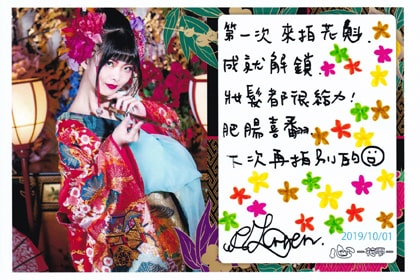 第一次 來拍花魁.
成就解鎖.
妝髮都很給力!
肥腸喜翻.
下次再拍別的
2019/10/01